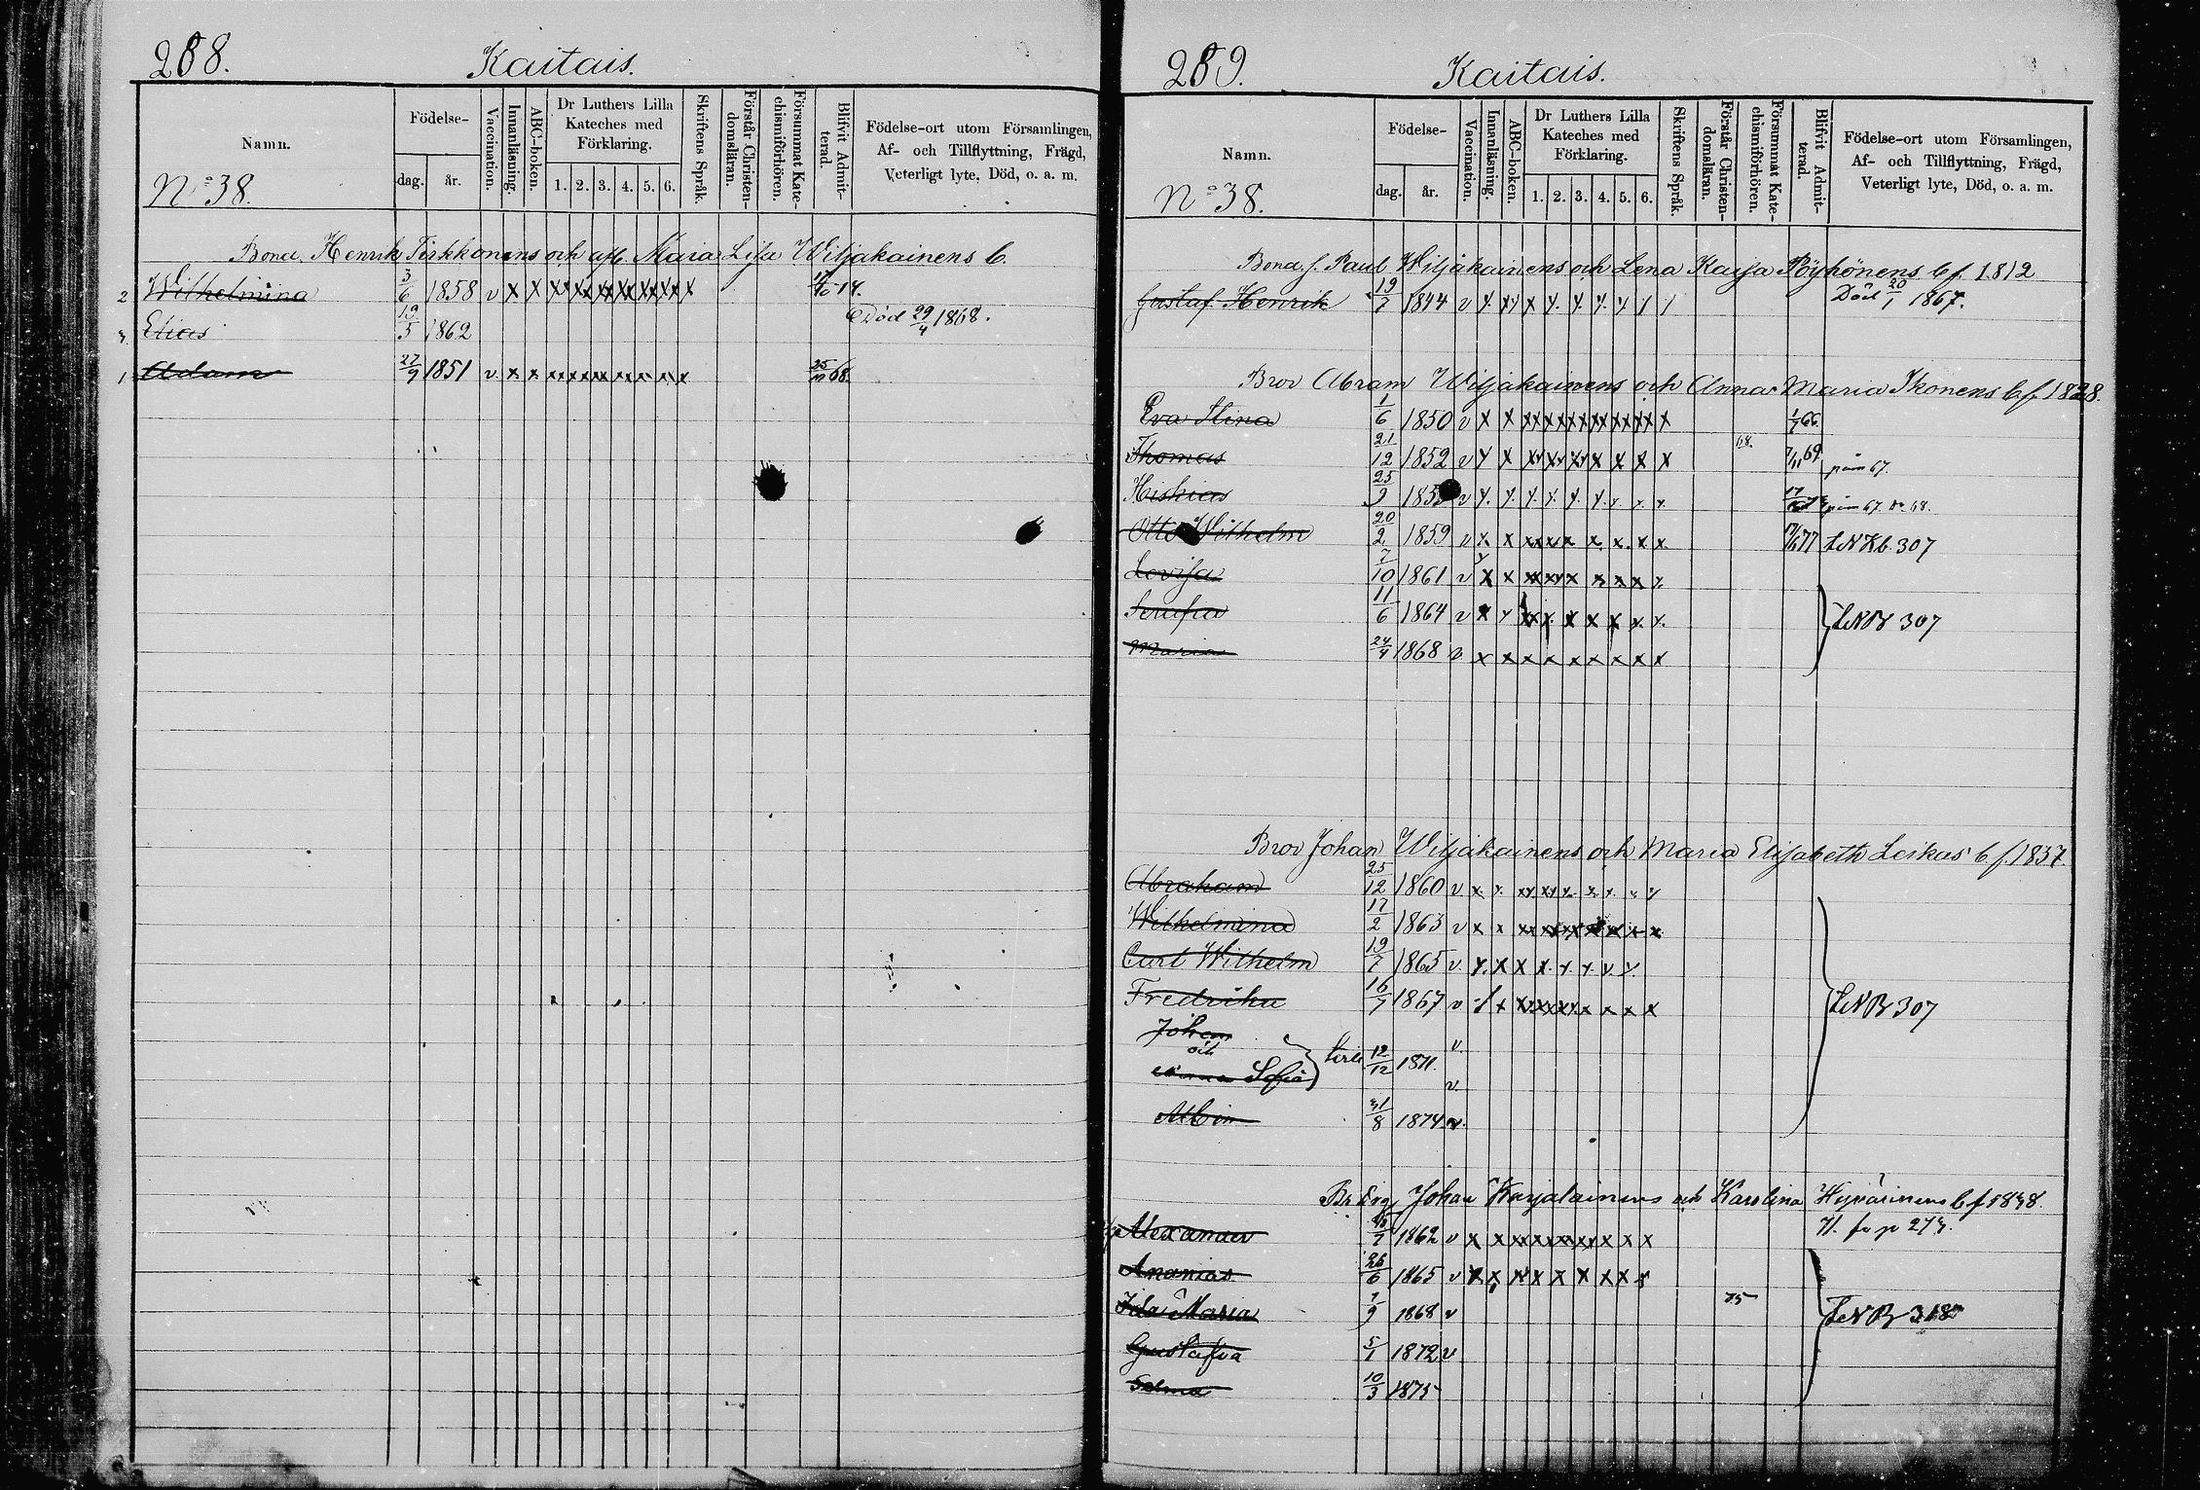 288.
Kaitais.
Namn.
Födelse-
dag.
år.
Vaccination.
Innanläsning.
ABC-boken.
Dr Luthers Lilla
Kateches med
Förklaring.
1. 2. 3. 4. 5. 6.
Skriftens Språk.
Förstår Christen-
domsläran.
Försummat Kate-
chismiförhören.
Blifvit Admit-
terad.
Födelse-ort utom Församlingen,
Af- och Tillflyttning, Frägd,
Veterligt lyte, Död, o. a. m.
No 38.
Bond. Henrik Tirkkonens och afl. Maria Lisa Wiljakainens b.
2 Wilhelmina 3/6 1858 v x x x x x x x x x
3. Elias 19/5 1862 Död 29/4 1868.
1 Adam 27/9 1851 v x x x x x x x x x 68
289.
Kaitais.
Namn.
Födelse-
dag.
år.
Vaccination.
Innanläsning.
ABC-boken.
Dr Luthers Lilla
Kateches med
Förklaring.
1. 2. 3. 4. 5. 6.
Skriftens Språk.
Förstår Christen-
domsläran.
Försummat Kate-
chismiförhören.
Blifvit Admit-
terad.
Födelse-ort utom Församlingen,
Af- och Tillflyttning, Frägd,
Veterligt lyte, Död, o. a. m.
No 38.
Bond. f. Paul Wiljakainens och Lena Kaisa Pöyhönens b f. 1812
Gustaf Henrik 19/7 1844 v Död 20/1 1867.
Brov Abram Wiljakainens och Anna Maria Ikonens b f. 1828.
Eva Stina 1/6 1850 v 66
Thomas 21/12 1852 v 68. 7/11 69 67.
Hiskias 25/9 v 67. 68.
Otto Wilhelm 20/2 1859 v 77 LNKb. 307
Lovisa 7/10 1861 v
Serafia 11/6 1864 v LNB 307
Maria 24/4 1868 v
Brov Johan Wiljakainens och Maria Elisabeth Leikas b. f. 1837.
Abraham 25/12 1860 v
Wilhelmina 17/2 1863 v
Carl Wilhelm 19/7 1865 v
Fredrika 16/7 1867 v LNB 307
Johan v.
och 12/12 1871.
Sofia v.
Albin 31/8 1874 v.
Johan Karjalainens och Karolina Hyvärinens b f 1838.
Alexander 1862 v fr p 273.
Ananias 26/6 1865 v
Ida Maria 7/9 1868 v 75 LNB 318
Gustafva 5/1 1872 v
Selma 10/3 1875